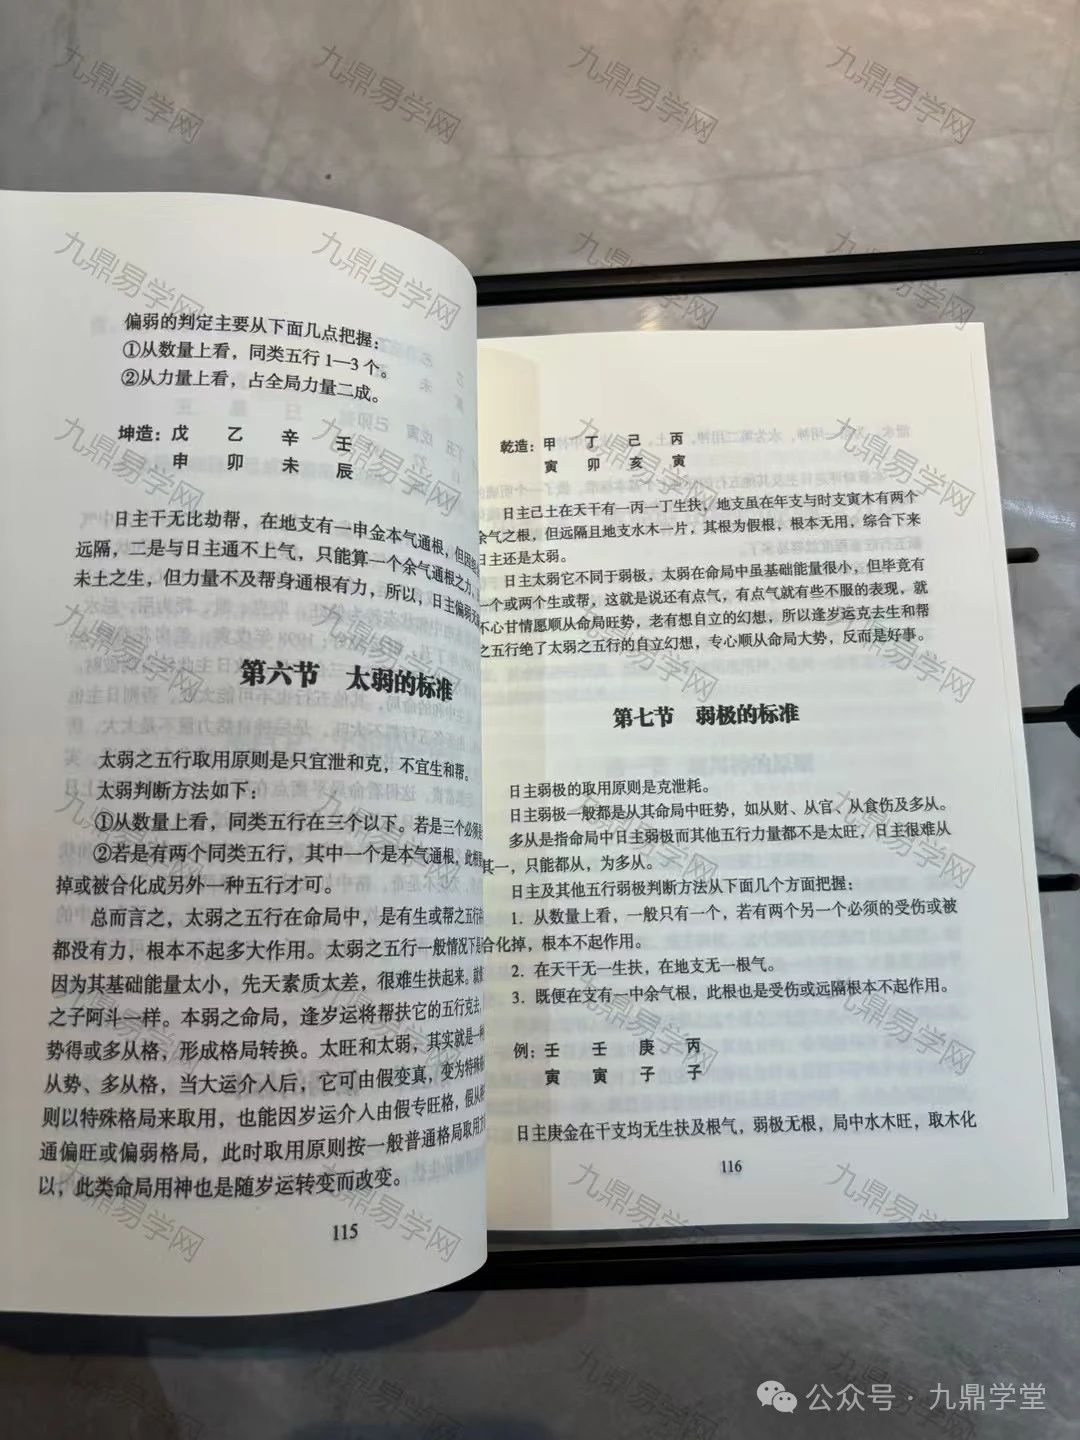 偏弱的判定主要从下面几点把握：
①从数量上看，同类五行1—3个。
②从力量上看，占全局力量二成。
坤造：戊 乙 辛 壬
申 卯 未 辰
日主干无比劫帮，在地支有一申金本气通根，但因
远隔，二是与日主通不上气，只能算一个余气通根之力，
未土之生，但力量不及帮身通根有力，所以，日主偏弱
第六节 太弱的标准
太弱之五行取用原则是只宜泄和克，不宜生和帮。
太弱判断方法如下：
①从数量上看，同类五行在三个以下。若是三个必须
②若是有两个同类五行，其中一个是本气通根，此根
掉或被合化成另外一种五行才可。
总而言之，太弱之五行在命局中，是有生或帮之五行
都没有力，根本不起多大作用。太弱之五行一般情况下是
因为其基础能量太小，先天素质太差，很难生扶起来。就
之子阿斗一样。本弱之命局，逢岁运将帮扶它的五行克去，
势得或多从格，形成格局转换。太旺和太弱，其实就是一种
从势、多从格，当大运介入后，它可由假变真，变为特殊
则以特殊格局来取用，也能因岁运介人由假专旺格，假从
通偏旺或偏弱格局，此时取用原则按一般普通格局取用
以，此类命局用神也是随岁运转变而改变。
115
乾造：甲 丁 己 丙
寅 卯 亥 寅
日主己土在天干有一丙一丁生扶，地支虽在年支与时支寅木有两个
余气之根，但远隔且地支水木一片，其根为假根，根本无用，综合下来
日主还是太弱。
日主太弱它不同于弱极，太弱在命局中虽基础能量很小，但毕竟有
一个或两个生或帮，这就是说还有点气，有点气就有些不服的表现，就
不心甘情愿顺从命局旺势，老有想自立的幻想，所以逢岁运克去生和帮
之五行绝了太弱之五行的自立幻想，专心顺从命局大势，反而是好事。
第七节 弱极的标准
日主弱极的取用原则是克泄耗。
日主弱极一般都是从其命局中旺势，如从财、从官、从食伤及多从。
多从是指命局中日主弱极而其他五行力量都不是太旺，日主很难从
其一，只能都从，为多从。
日主及其他五行弱极判断方法从下面几个方面把握：
1．从数量上看，一般只有一个，若有两个另一个必须的受伤或被
合化掉，根本不起作用。
2．在天干无一生扶，在地支无一根气。
3．既便在支有一中余气根，此根也是受伤或远隔根本不起作用。
例：壬 壬 庚 丙
寅 寅 子 子
日主庚金在干支均无生扶及根气，弱极无根，局中水木旺，取木化
116
九鼎易学网
公众号·九鼎学堂